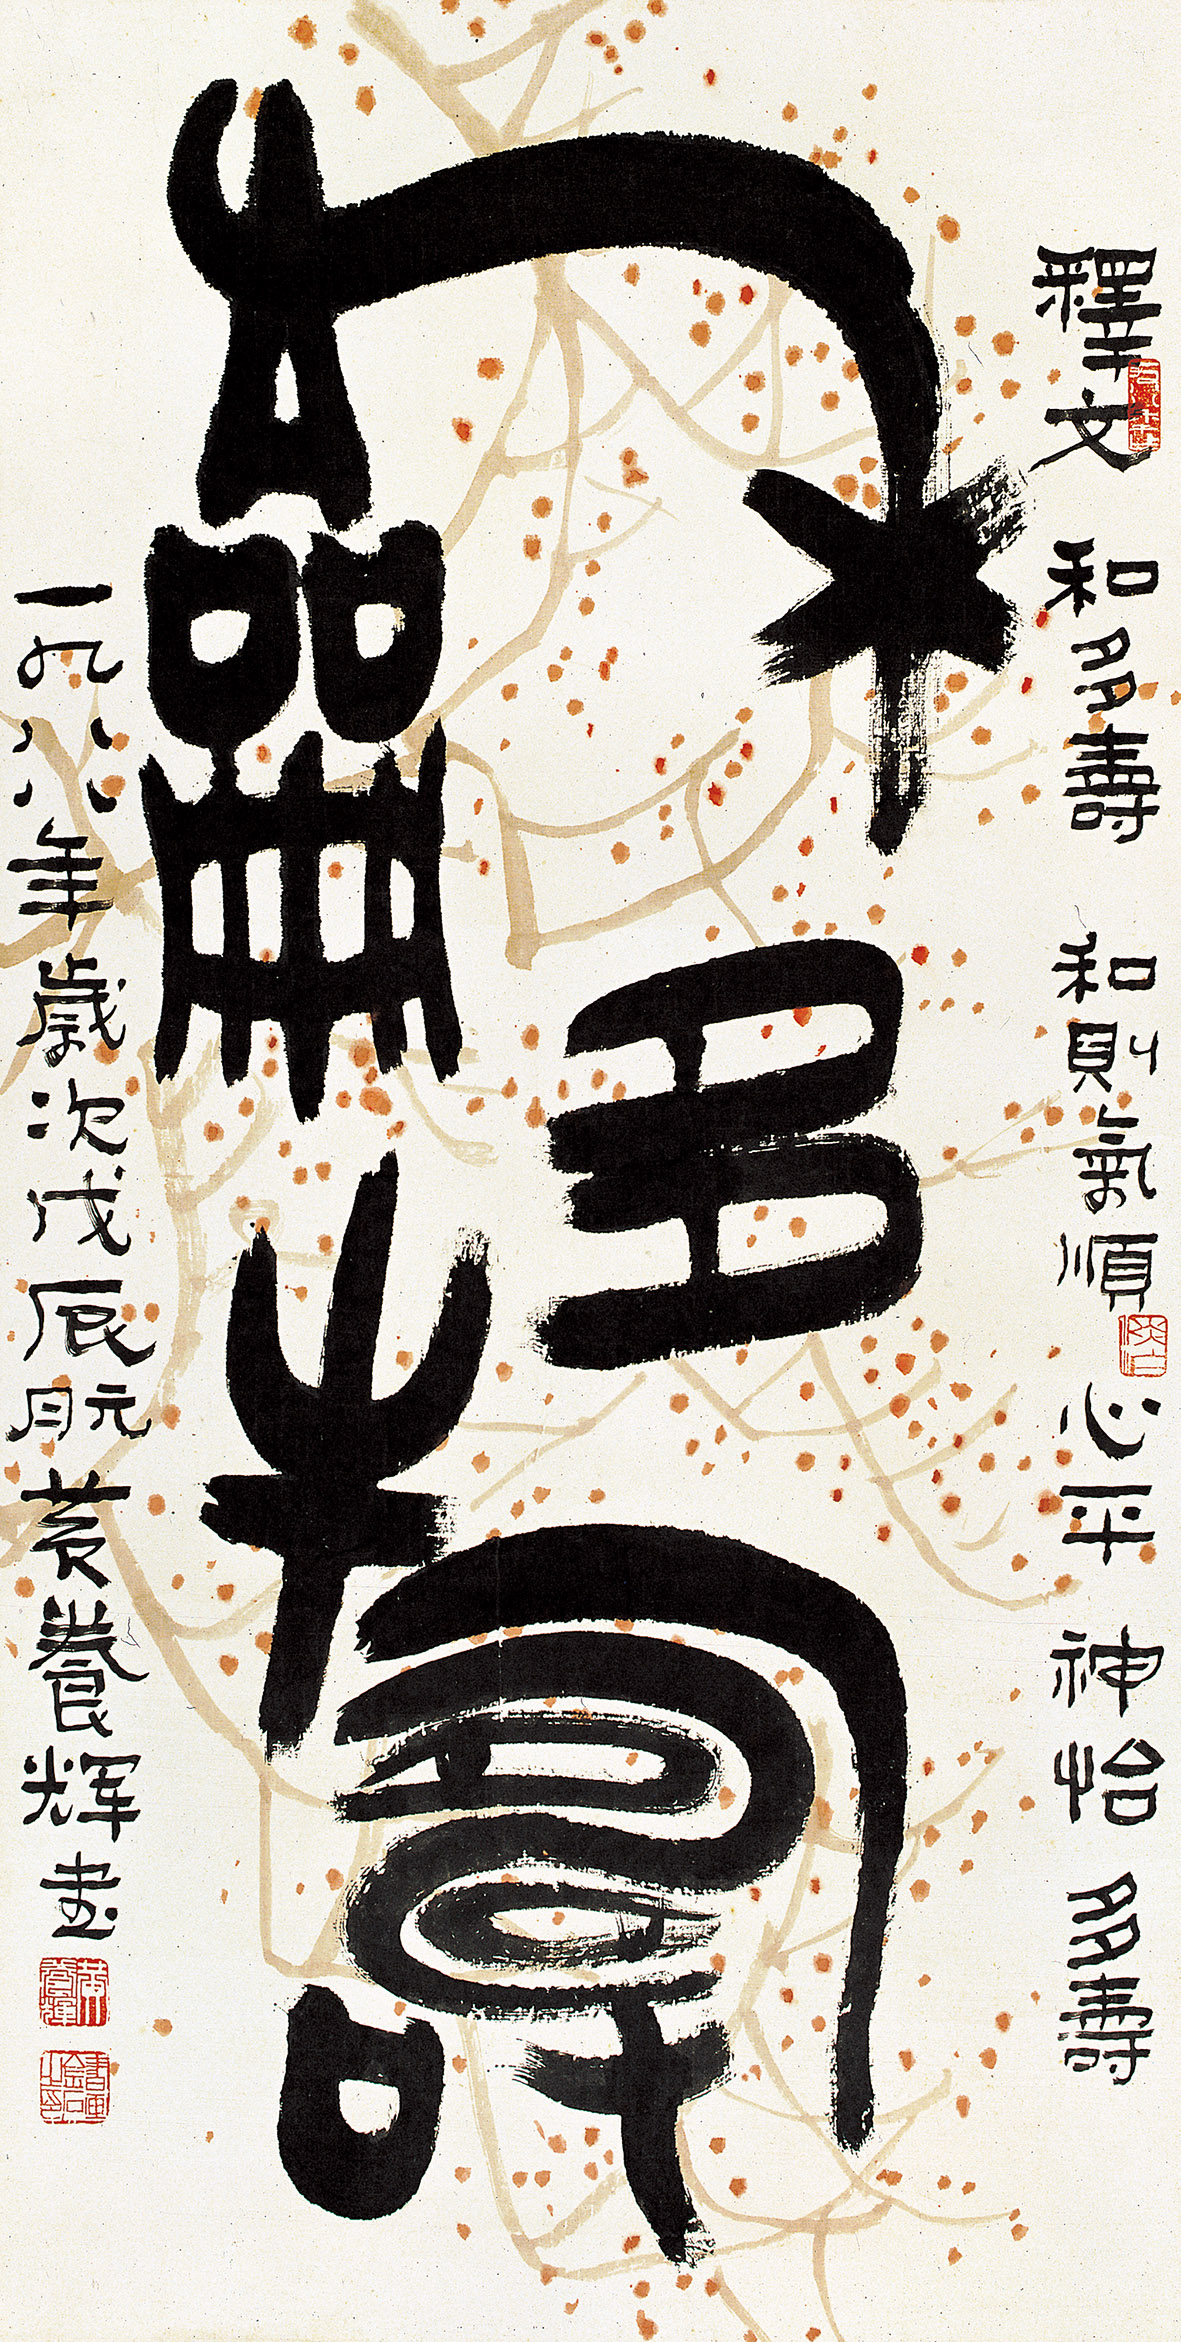 釋文 和多壽 和則氣順 心平 神怡 多壽
和多壽
一九八八年歲次戊辰元月 黃養輝書
黃養輝